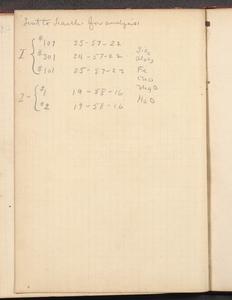 Sent to Search for analysis
I { #107 25-57-22
#301 24-57-22 SiO2
#101 25-57-22 Al2O3
Fe
CaO
I - { #1 19-58-16 MgO
#2 19-58-16 H2O